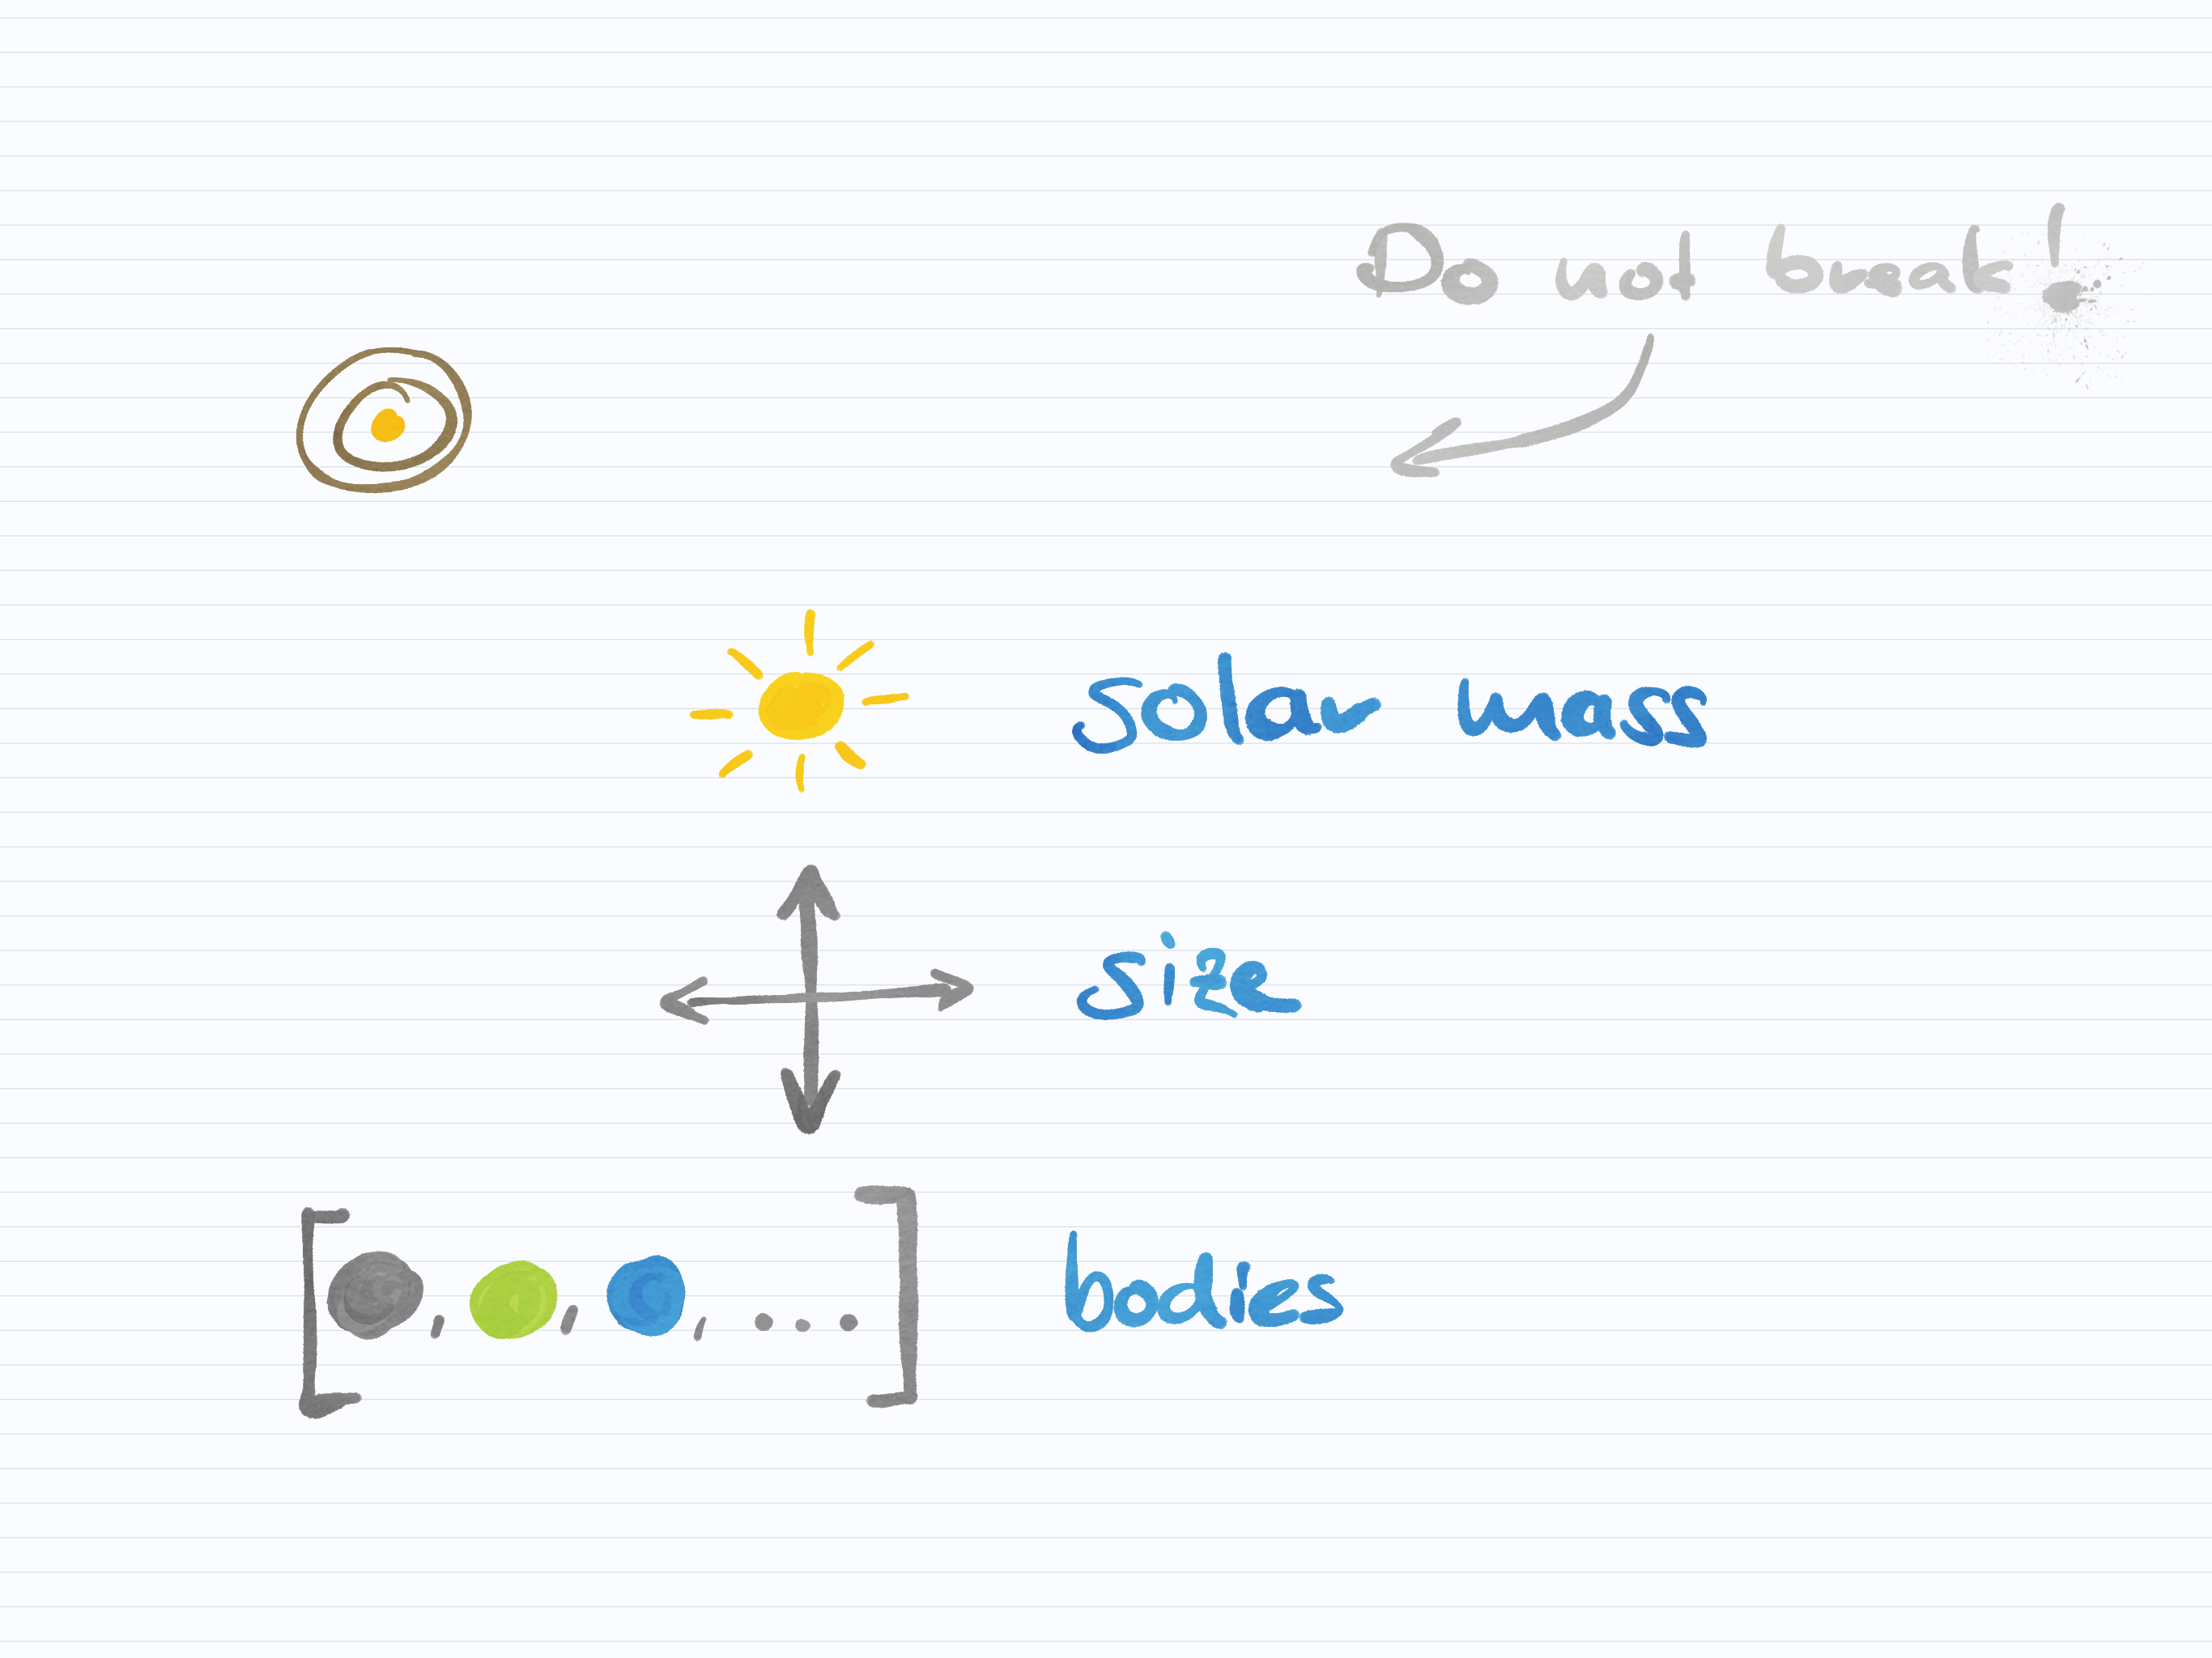 Do not break!
solar mass
size
[ , , , ... ] bodies